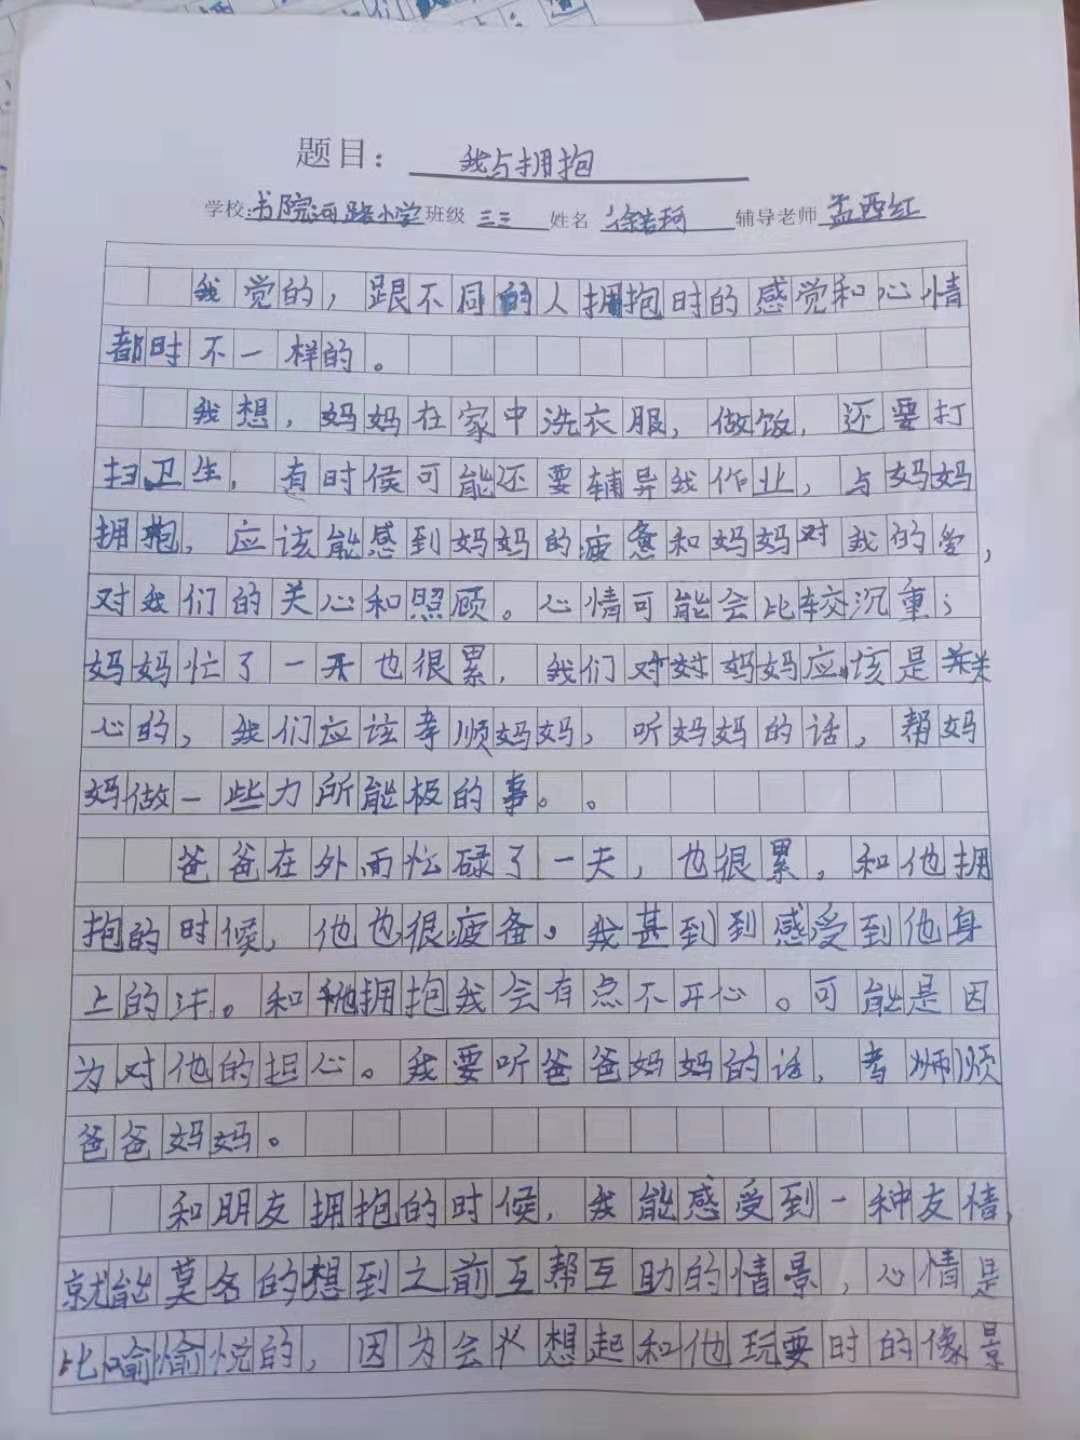 题目：我与拥抱
学校：书院河路小学班级 三三 姓名 徐若珂 辅导老师 孟西红
我觉的，跟不同的人拥抱时的感觉和心情
都时不一样的。
我想，妈妈在家中洗衣服，做饭，还要打
扫卫生，有时候可能还要辅导我作业，与妈妈
拥抱，应该能感到妈妈的疲惫和妈妈对我的爱，
对我们的关心和照顾。心情可能会比较沉重；
妈妈忙了一天也很累，我们对妈妈应该是关
心的，我们应该孝顺妈妈，听妈妈的话，帮妈
妈做一些力所能极的事。。
爸爸在外面忙碌了一天，也很累，和他拥
抱的时候，他也很疲备。我甚到到感受到他身
上的汗。和他拥抱我会有点不开心。可能是因
为对他的担心。我要听爸爸妈妈的话，孝顺
爸爸妈妈。
和朋友拥抱的时候，我能感受到一种友情，
就能莫名的想到之前互帮互助的情景，心情是
比喻愉悦的，因为会想起和他玩耍时的像景